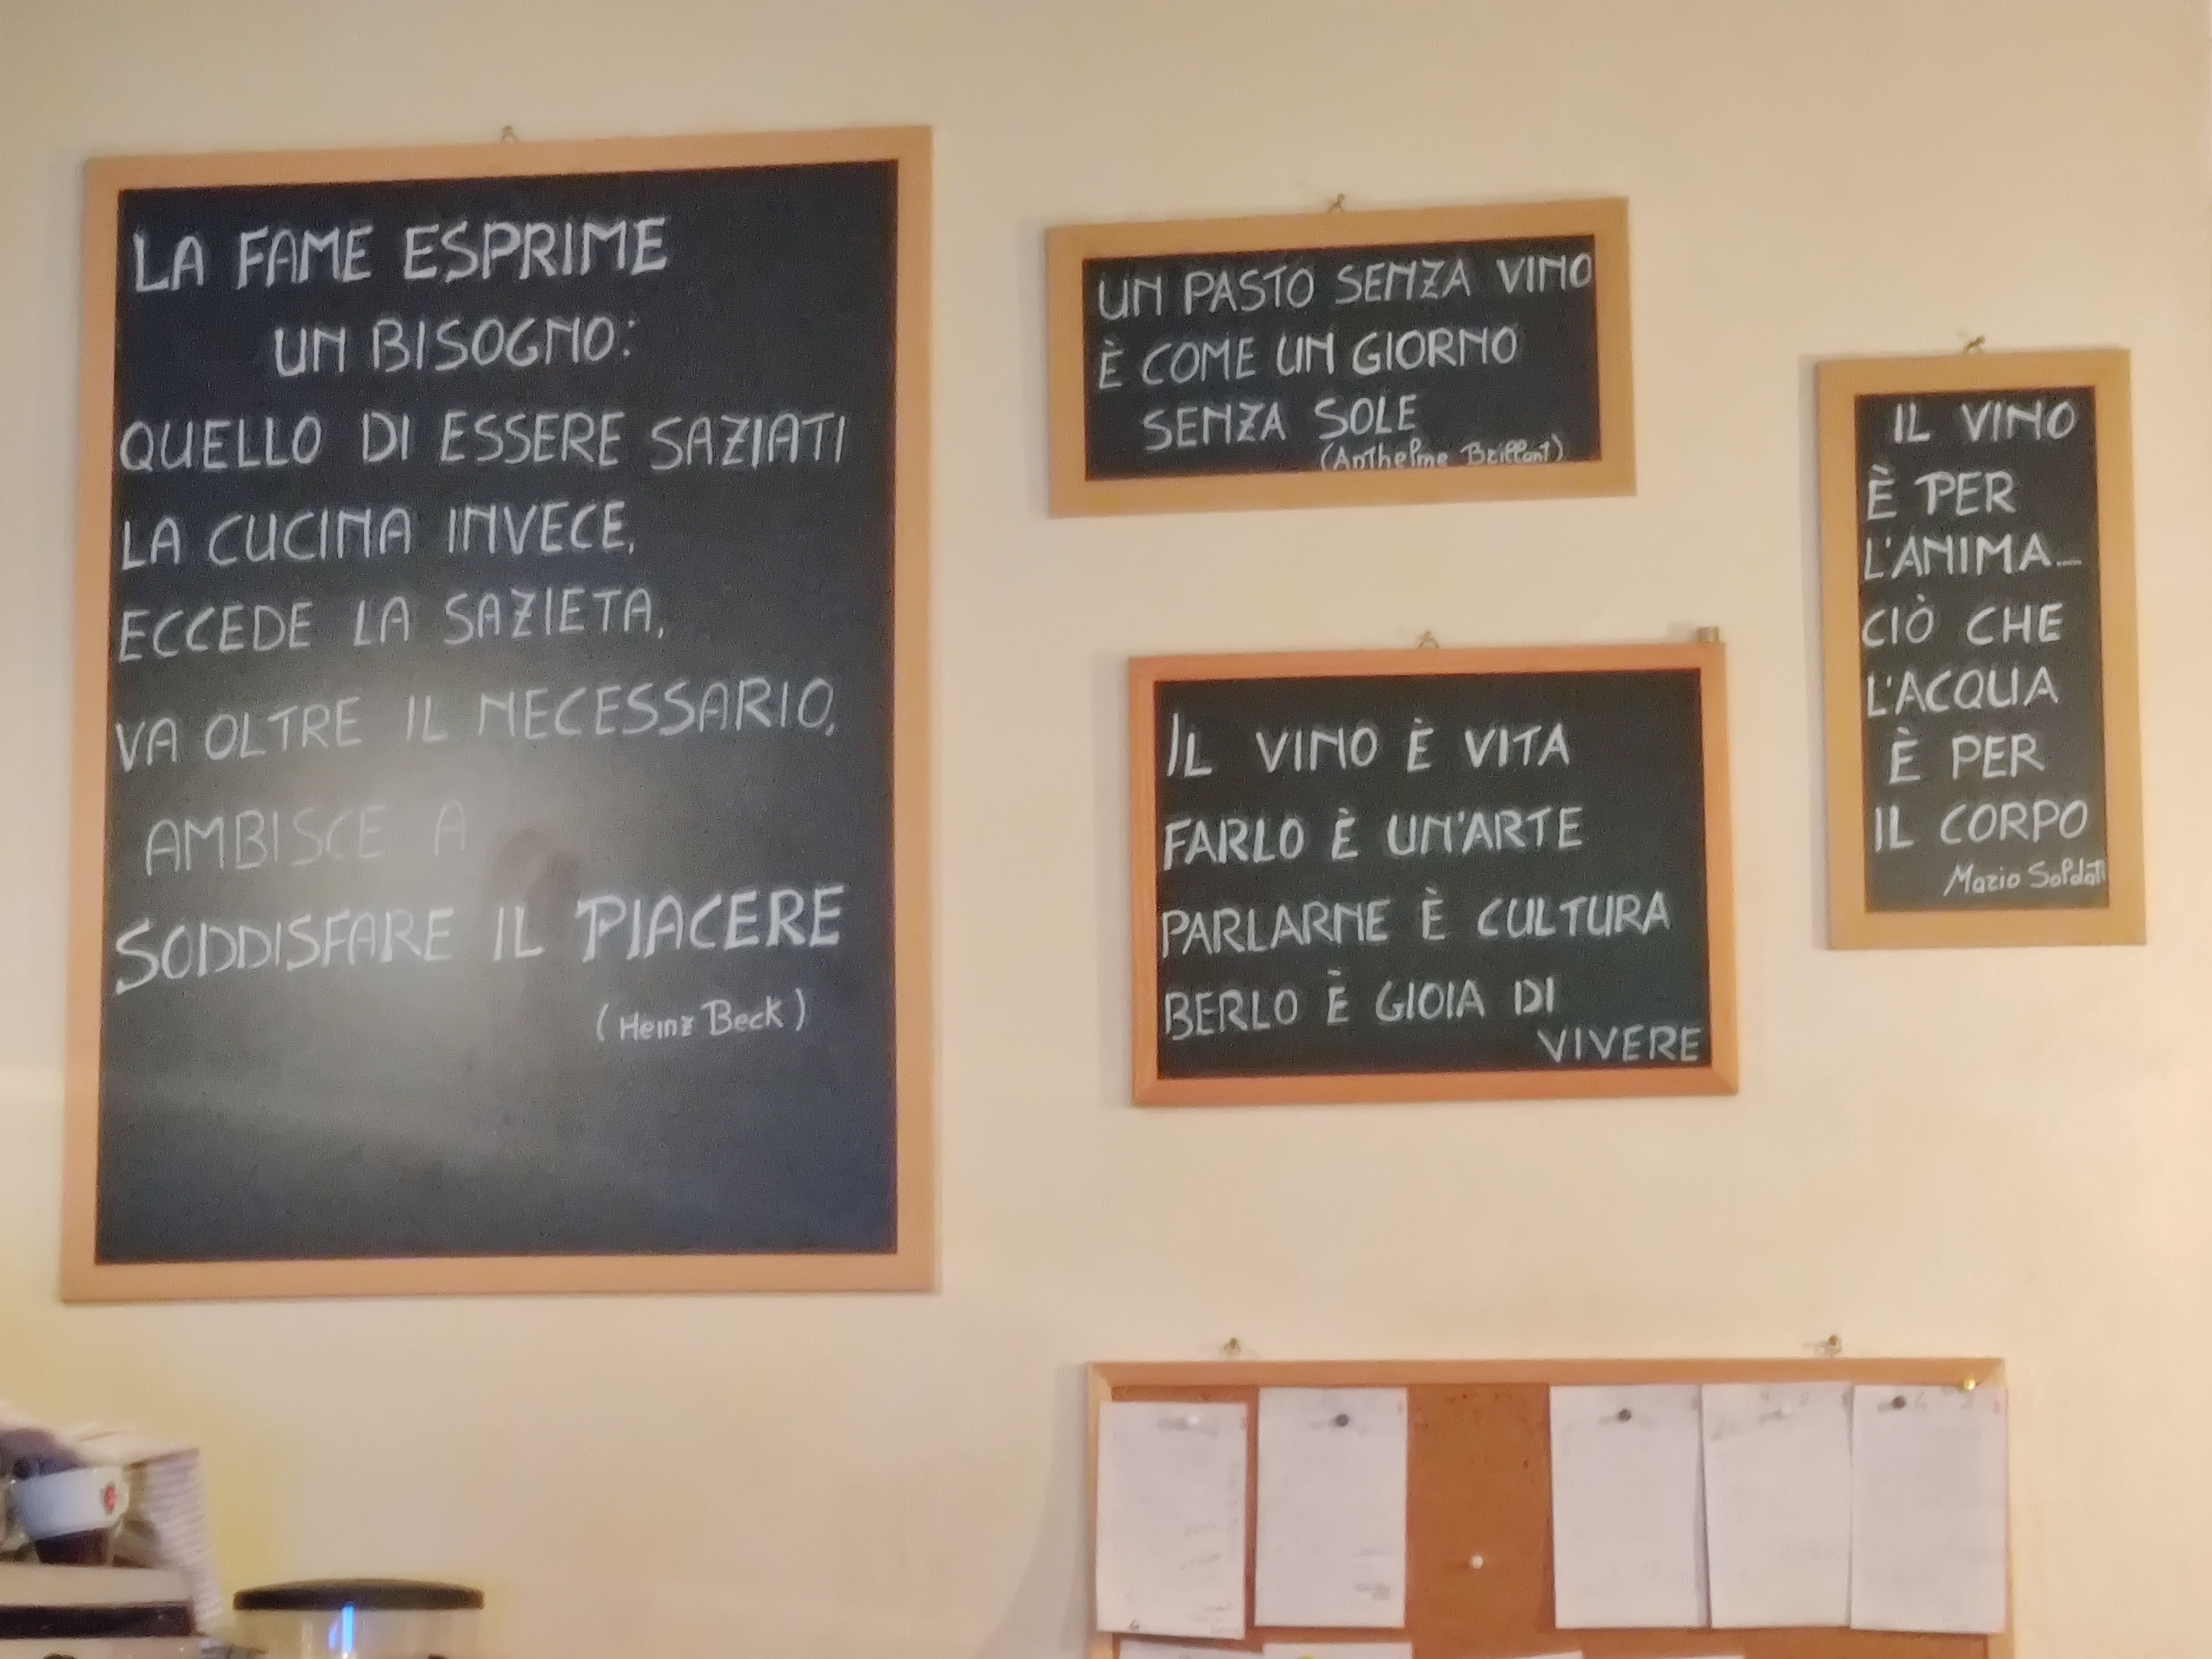 LA FAME ESPRIME
UN BISOGNO:
QUELLO DI ESSERE SAZIATI
LA CUCINA INVECE,
ECCEDE LA SAZIETA,
VA OLTRE IL NECESSARIO,
AMBISCE A
SODDISFARE IL PIACERE
(Heinz Beck)
UN PASTO SENZA VINO
È COME UN GIORNO
SENZA SOLE
(Anthelme Brillant)
IL VINO È VITA
FARLO È UN'ARTE
PARLARNE È CULTURA
BERLO È GIOIA DI
VIVERE
IL VINO
È PER
L'ANIMA...
CIÒ CHE
L'ACQUA
È PER
IL CORPO
Mario Soldati